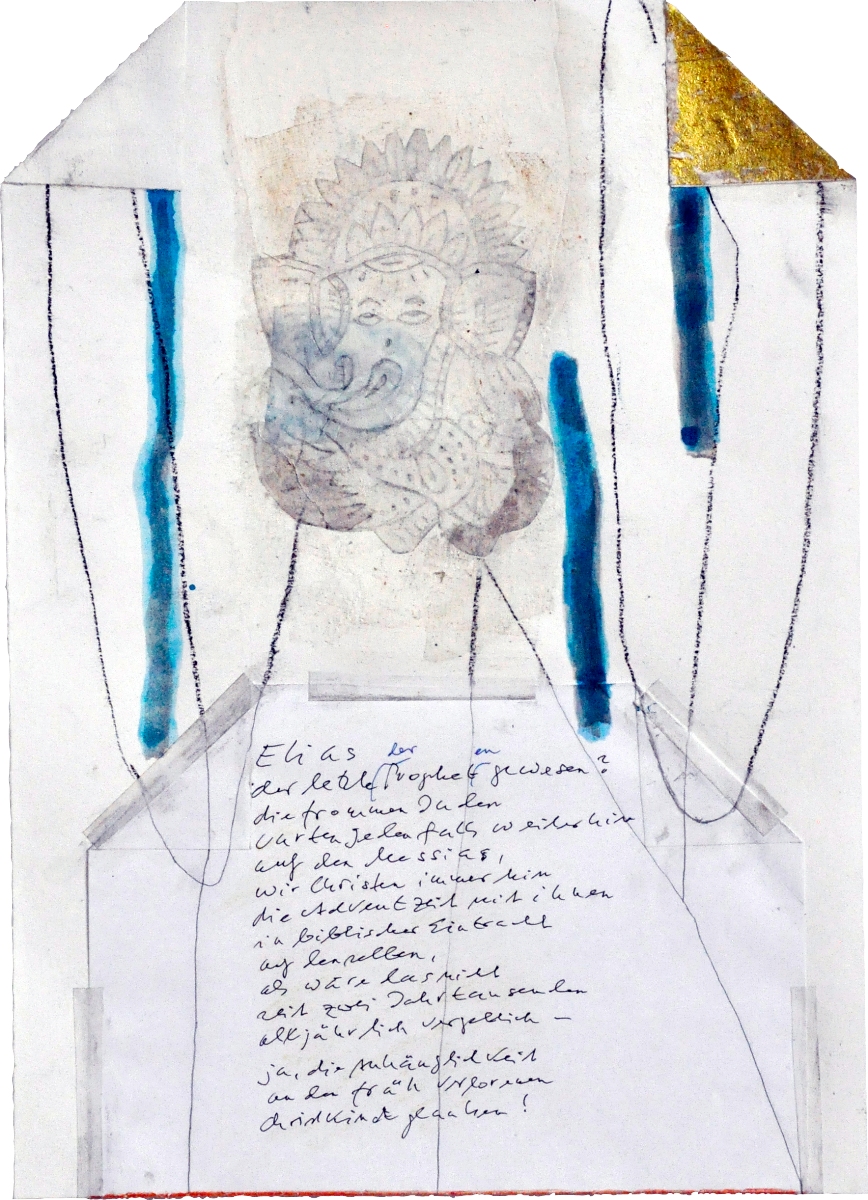 Elias der
der letzte Propheten gewesen?
die frommen Juden
warten jedenfalls weiterhin
auf den Messias,
wir Christen immerhin
die Adventzeit mit ihnen
in biblischer Eintracht
auf denselben,
als wäre das nicht
seit zwei Jahrtausenden
alljährlich vergeblich –
ja, die Anhänglichkeit
an den früh verlorenen
Christkindglauben!